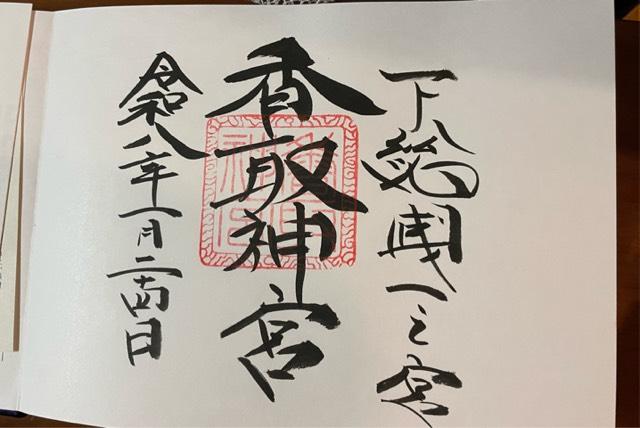 下總國一之宮
香取神宮
令和八年一月二十四日